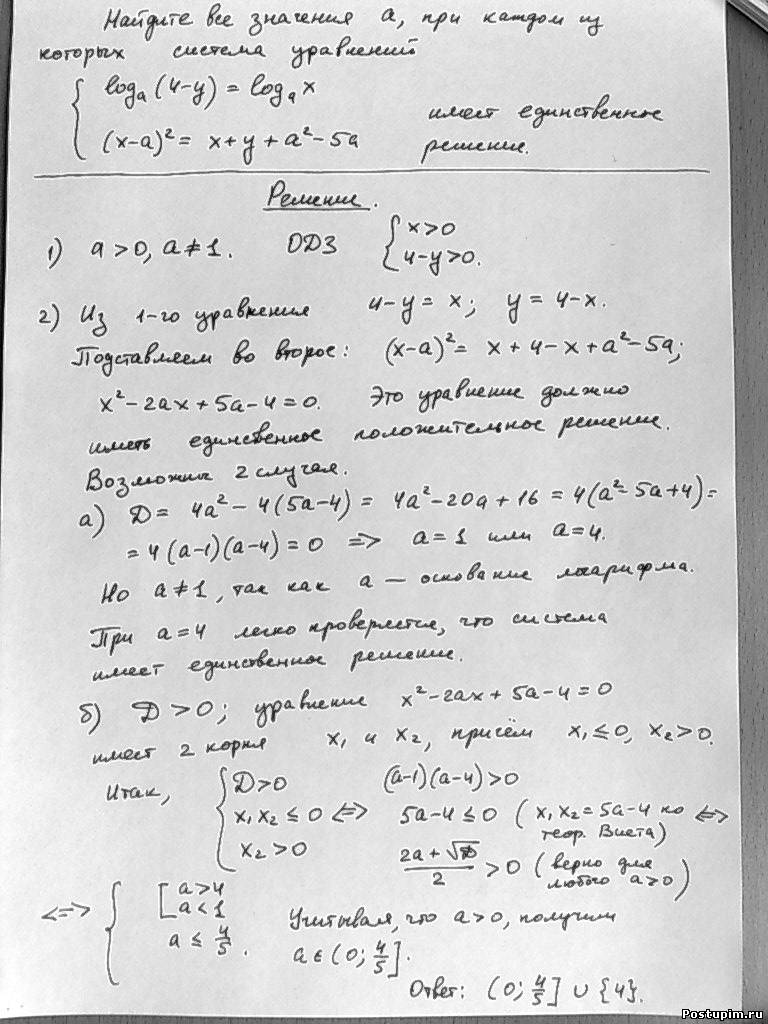 Найдите все значения a, при каждом из
которых система уравнений
{ logₐ(4-y) = logₐx
(x-a)² = x+y+a²-5a
имеет единственное
решение.
Решение.
1) a>0, a≠1. ОДЗ { x>0
4-y>0.
2) Из 1-го уравнения 4-y = x; y = 4-x.
Подставляем во второе: (x-a)² = x+4-x+a²-5a;
x²-2ax+5a-4=0. Это уравнение должно
иметь единственное положительное решение.
Возможны 2 случая.
а) D = 4a²-4(5a-4) = 4a²-20a+16 = 4(a²-5a+4) =
= 4(a-1)(a-4) = 0 => a=1 или a=4.
Но a≠1, так как a — основание логарифма.
При a=4 легко проверяется, что система
имеет единственное решение.
б) D>0; уравнение x²-2ax+5a-4=0
имеет 2 корня x₁ и x₂, причём x₁≤0, x₂>0.
Итак, { D>0 (a-1)(a-4)>0
x₁x₂≤0 <=> 5a-4≤0 (x₁x₂=5a-4 по <=>
теор. Виета)
x₂>0 (2a+√D)/2 >0 (верно для
любого a>0)
<=> { [ a>4
a<1
a≤4/5. Учитывая, что a>0, получим
a∈(0; 4/5].
Ответ: (0; 4/5] ∪ {4}.
Postupim.ru